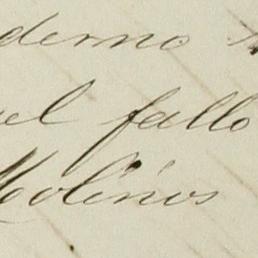 derno
el fallo
Molinos